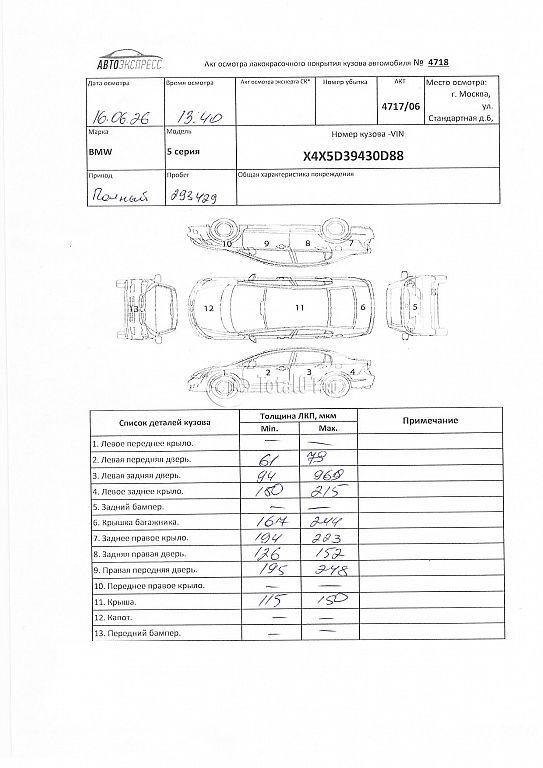 АВТОЭКСПРЕСС
Акт осмотра лакокрасочного покрытия кузова автомобиля № 4718
Дата осмотра Время осмотра Акт осмотра эксперта СК* Номер убытка АКТ Место осмотра:
16.06.26 13.40 4717/06 г. Москва, ул. Стандартная д.6,
Марка Модель Номер кузова -VIN
BMW 5 серия X4X5D39430D88
Привод Пробег Общая характеристика повреждения
Полный 293429
10 9 8 7
13 12 11 6 5
1 2 3 4
Total01
Список деталей кузова Толщина ЛКП, мкм Примечание
Min. Max.
1. Левое переднее крыло. — —
2. Левая передняя дверь. 61 79
3. Левая задняя дверь. 94 968
4. Левое заднее крыло. 180 215
5. Задний бампер. — —
6. Крышка багажника. 167 244
7. Заднее правое крыло. 194 223
8. Задняя правая дверь. 126 152
9. Правая передняя дверь. 195 248
10. Переднее правое крыло. — —
11. Крыша. 115 150
12. Капот. — —
13. Передний бампер. — —